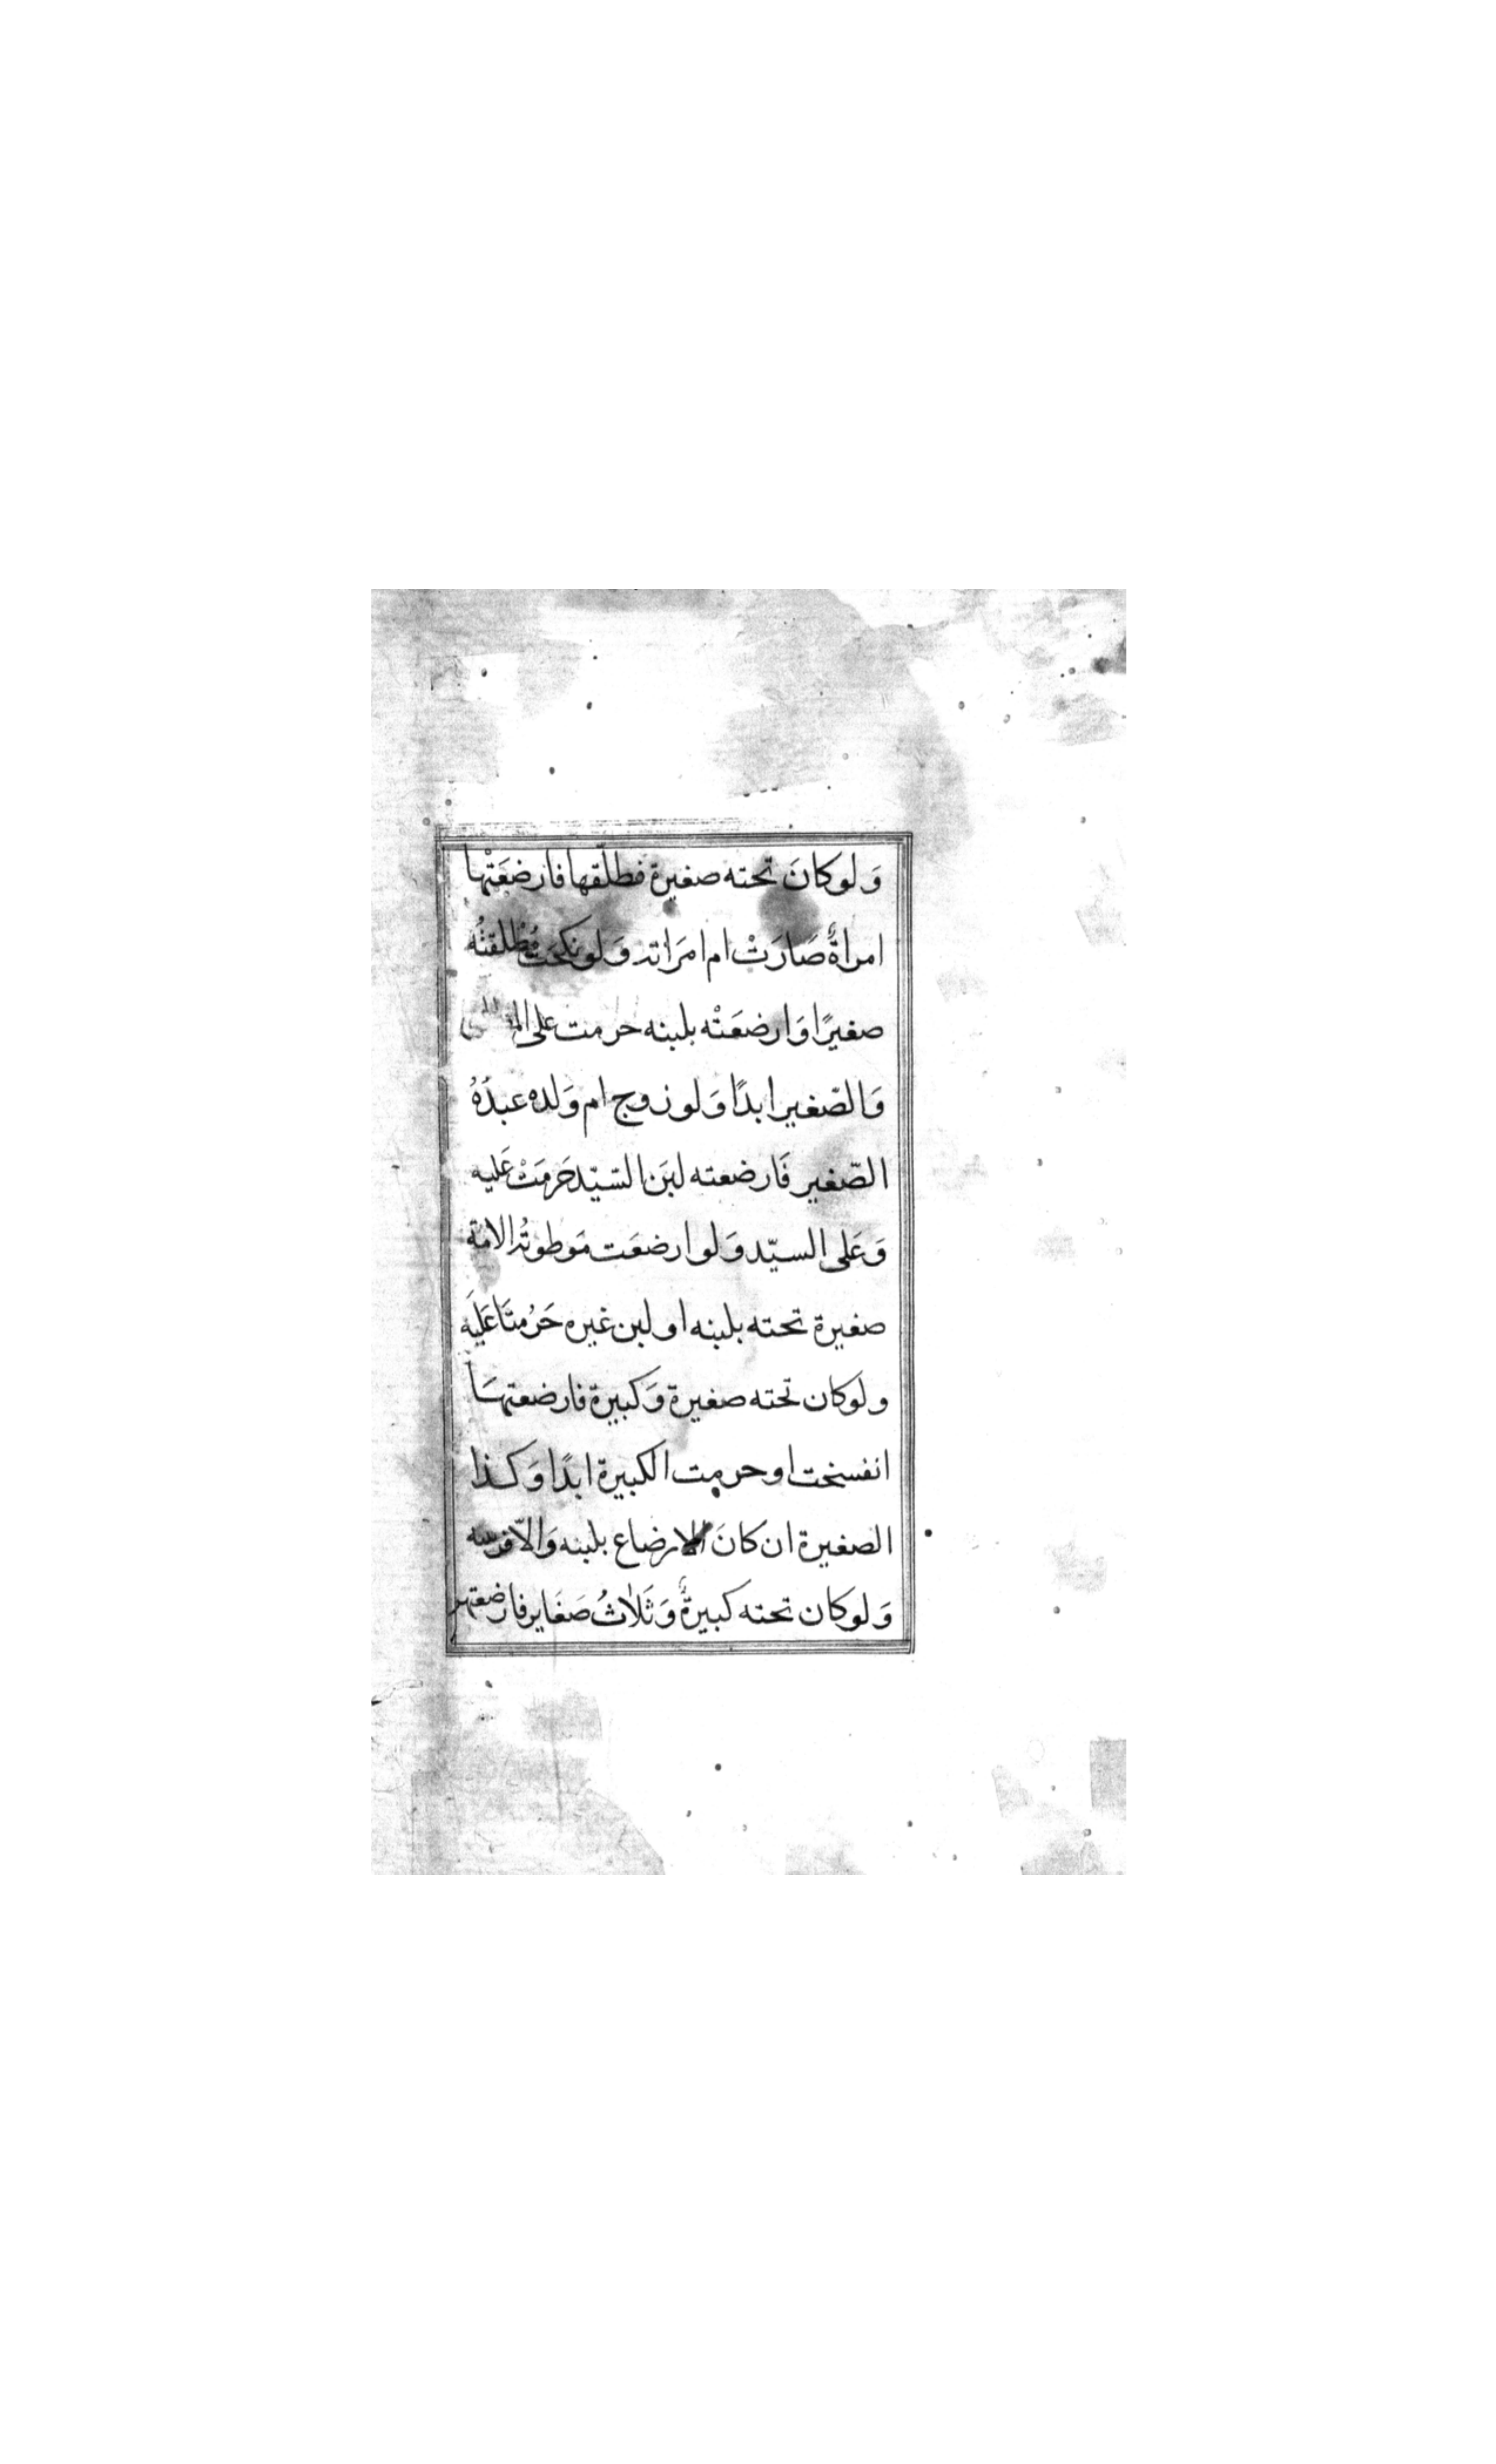 وَلوكانَ تحته صغيرة فطلّقها فارضعَتْها
امراةٌ صَارَتْ ام امرَاته وَلو نكحَت مُطلقتُه
صغيرًا وَارضعَتْه بلبنه حرمت على
وَالصّغير ابدًا وَلو زوج ام وَلده عبدُهُ
الصّغير فَارضعته لبَن السّيّد حَرمَتْ عَليه
وَعَلى السيّد وَلو ارضعَت مَوطوئُه الامَة
صغيرة تحته بلبنه او لبن غيره حَرُمتَا عَليَه
ولوكان تحته صغيرة وَكبيرة فارضعتهَا
انفسختا وحرمت الكبيرة ابدًا وَكذا
الصغيرة ان كانَ الارضاع بلبنه وَالاّ فربيبه
وَلوكان تحته كبيرةٌ وَثَلاثُ صَغَاير فارضعتهن